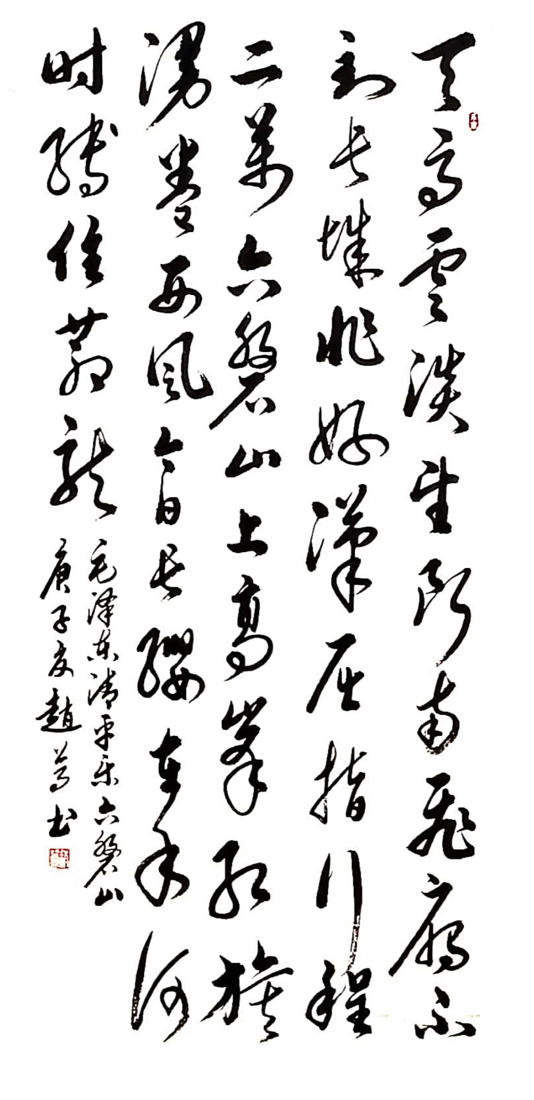 天高雲淡望断南飛雁不
到长城非好漢屈指行程
二萬六磐山上高峯红旗
漫卷西风今日长缨在手何
时縛住苍龙
毛泽东清平乐六磐山
庚子夏趙书